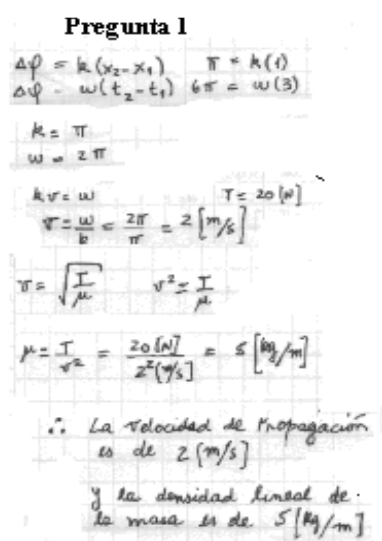 Pregunta 1
Δφ = k(x₂-x₁) π = k(1)
Δφ = w(t₂-t₁) 6π = w(3)
k = π
w = 2π
kv = w T = 20 [N]
v = w/k = 2π/π = 2 [m/s]
v = √(T/μ) v² = T/μ
μ = T/v² = 20[N]/2²[m/s] = 5 [kg/m]
∴ La velocidad de Propagación
es de 2 [m/s]
y la densidad lineal de
la masa es de 5 [kg/m]